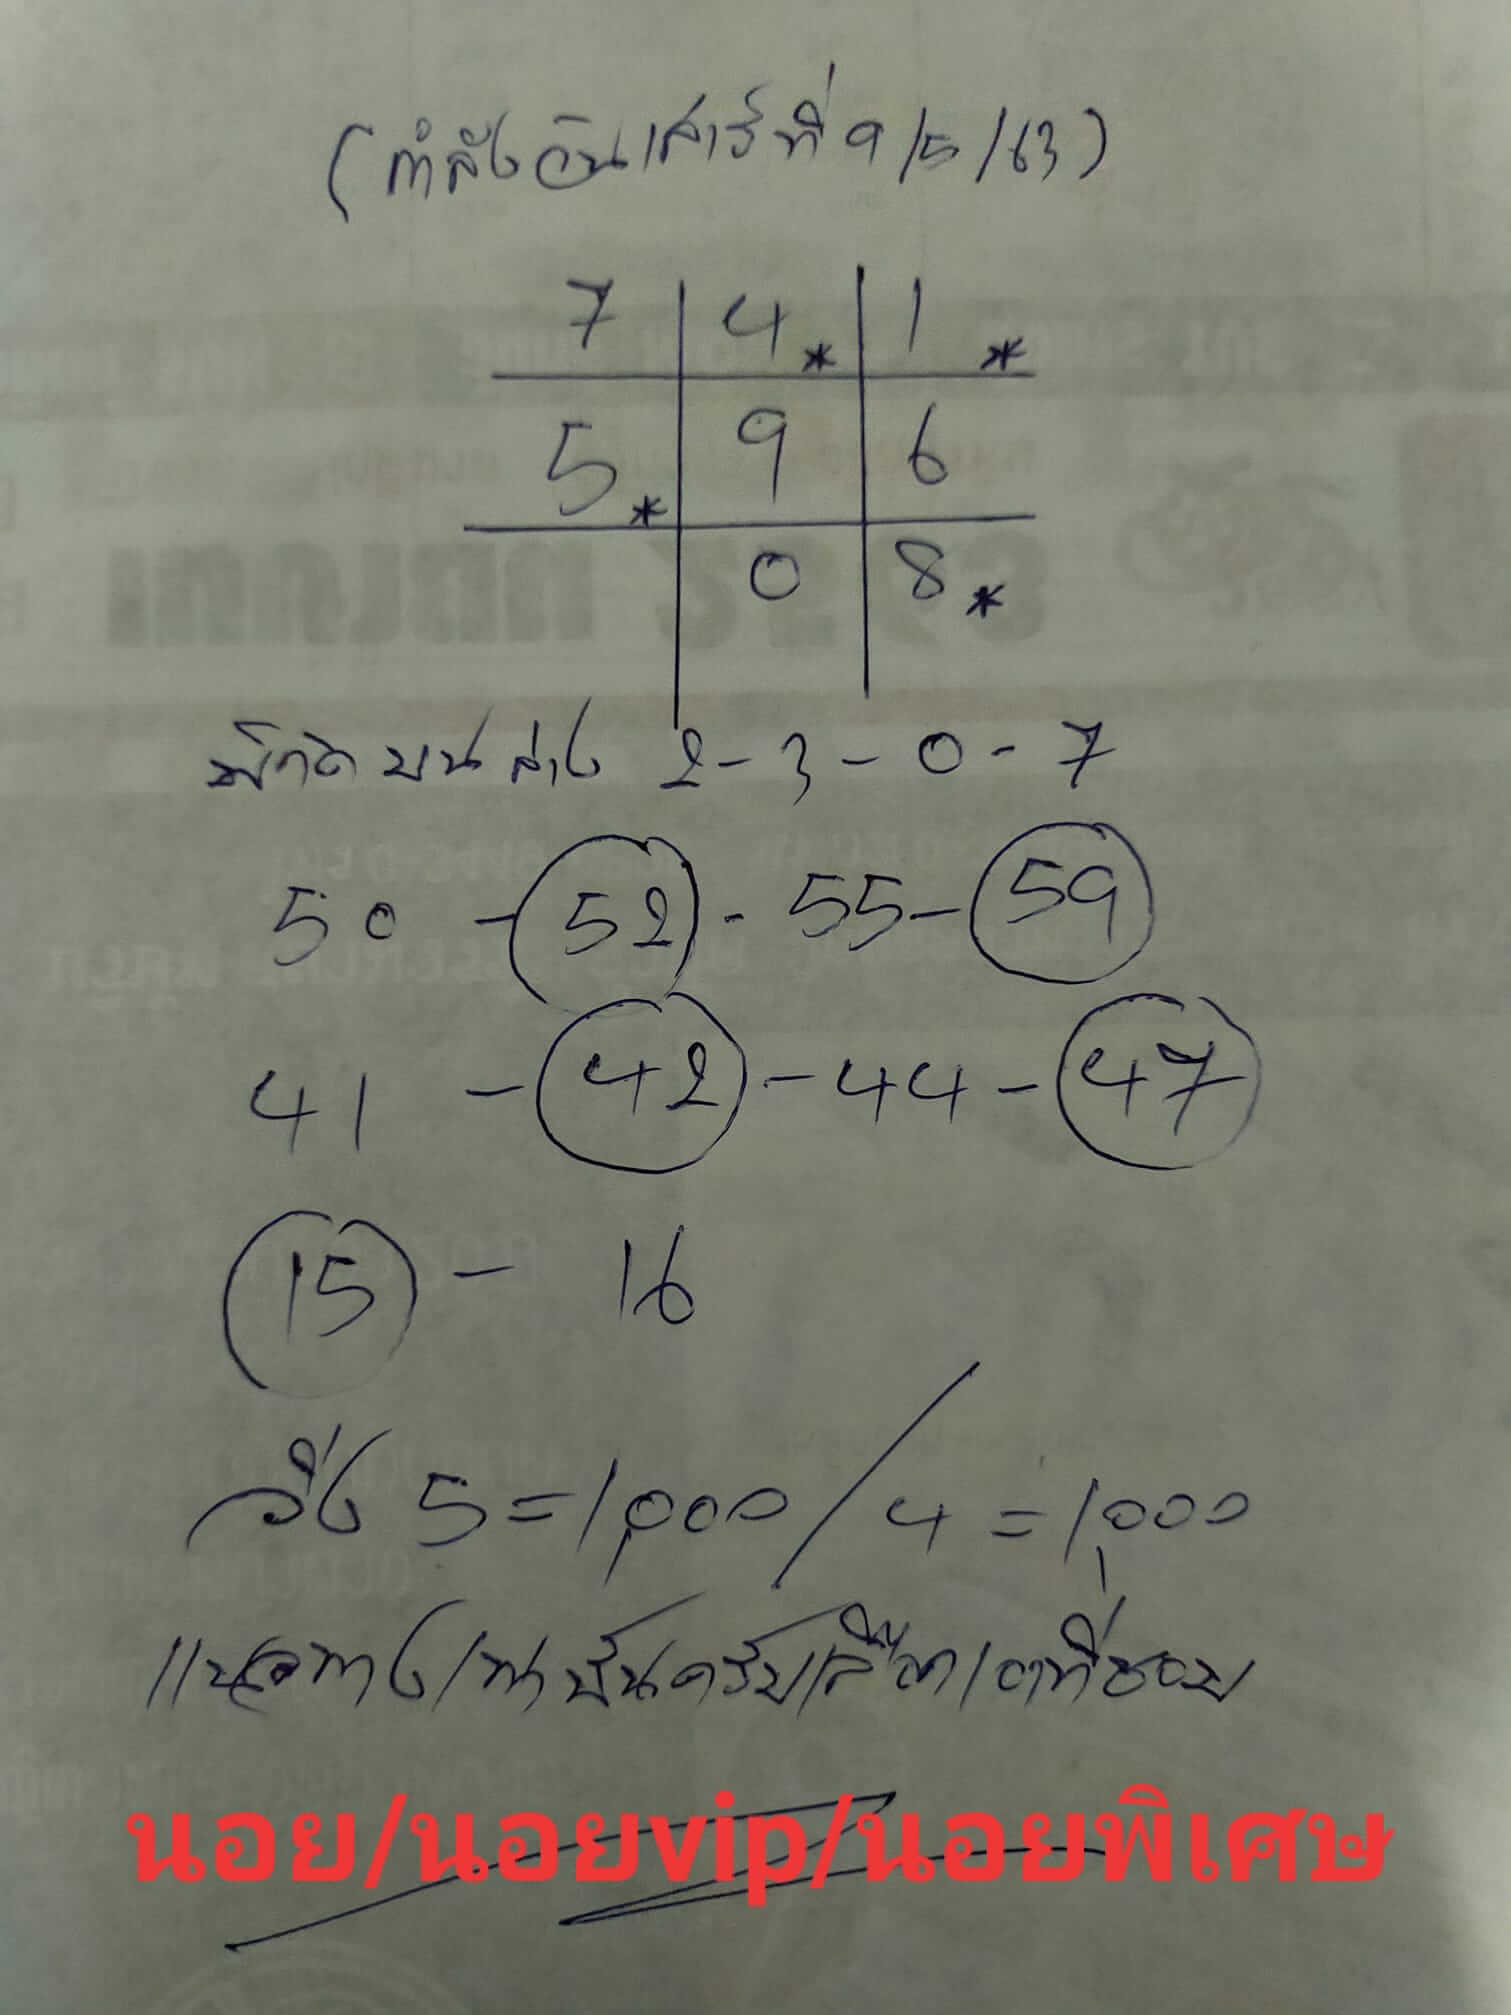 (กำลังวันเสาร์ที่ 9/5/63)
7 4* 1*
5* 9 6
0 8*
พิกัด บน ล่าง 2-3-0-7
50 - 52 - 55 - 59
41 - 42 - 44 - 47
15 - 16
วิ่ง 5 = 1,000 / 4 = 1,000
แนวทางเท่านั้นครับเลือกเอาที่ชอบ
นอย/นอยvip/นอยพิเศษ